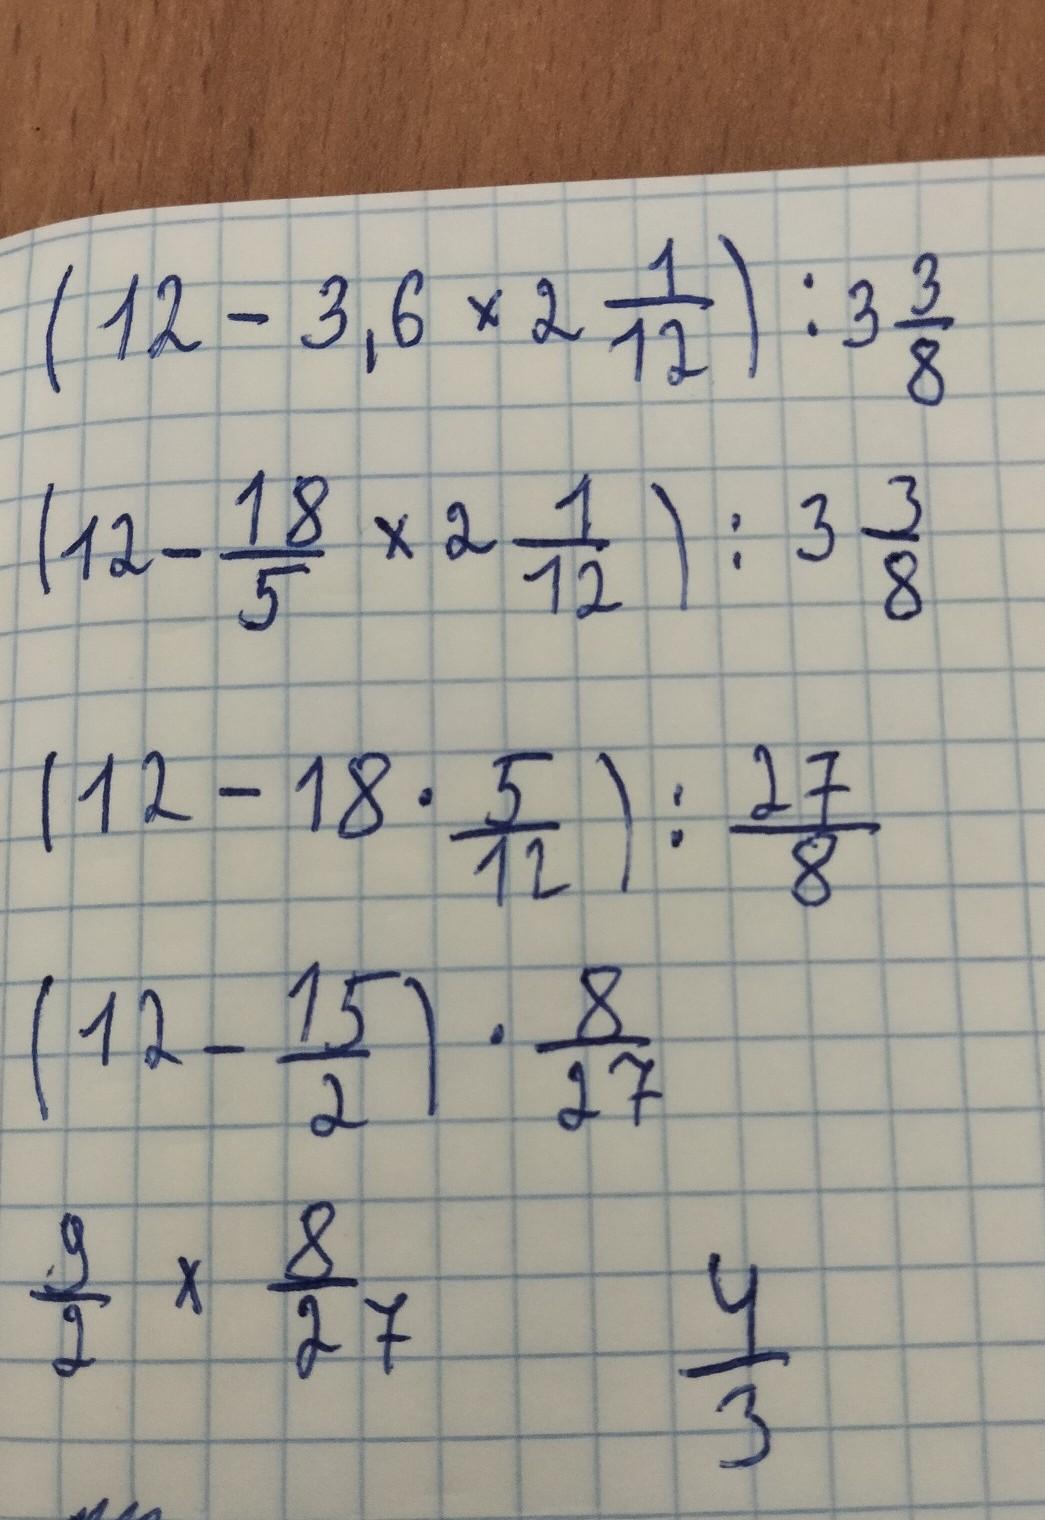 (12 - 3,6 × 2 1/12) : 3 3/8
(12 - 18/5 × 2 1/12) : 3 3/8
(12 - 18 · 5/12) : 27/8
(12 - 15/2) · 8/27
9/2 × 8/27 4/3